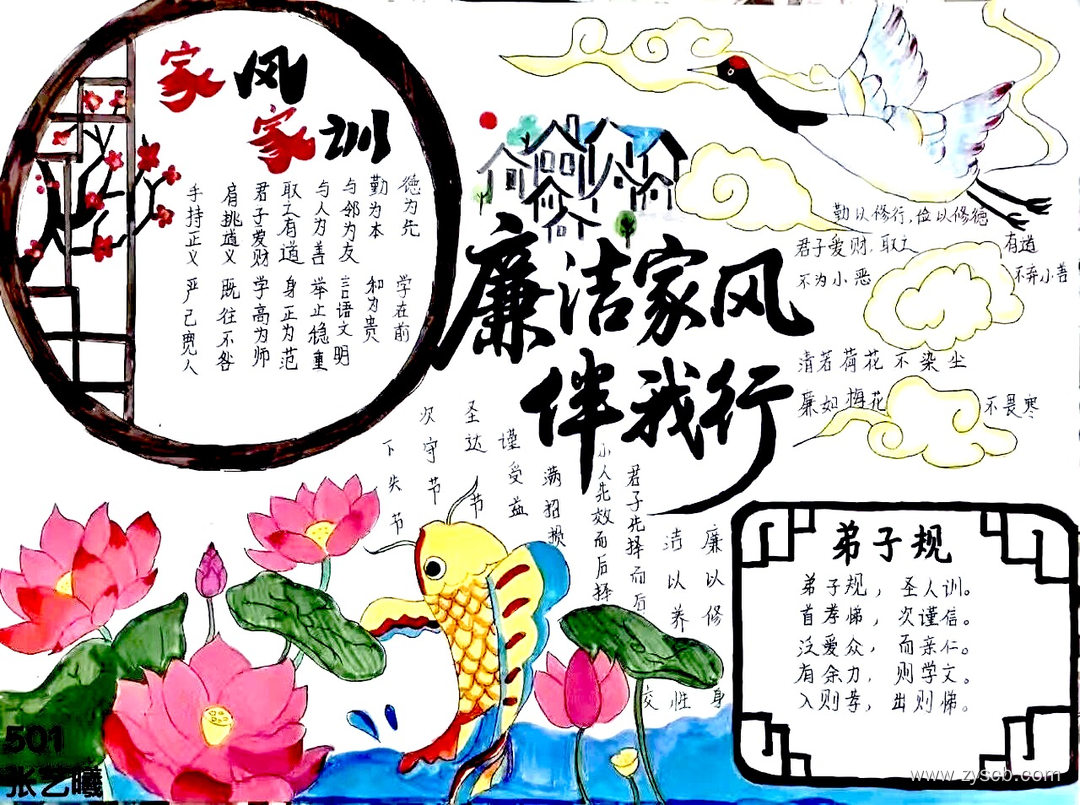 家风
家训
德为先 学在前
勤为本 和为贵
与邻为友 言语文明
与人为善 举止稳重
取之有道 身正为范
君子爱财 学高为师
肩挑道义 既往不咎
手持正义 严己宽人
廉洁家风
伴我行
勤以修行,俭以修德
君子爱财,取之 有道
不为小恶 不弃小善
清若荷花不染尘
廉如梅花 不畏寒
廉以修身
洁以养性
君子先择而后交
小人先效而后择
满招损
谨受益
圣达节
次守节
下失节
弟子规
弟子规,圣人训。
首孝悌,次谨信。
泛爱众,而亲仁。
有余力,则学文。
入则孝,出则悌。
501
张艺曦
www.zyscb.com